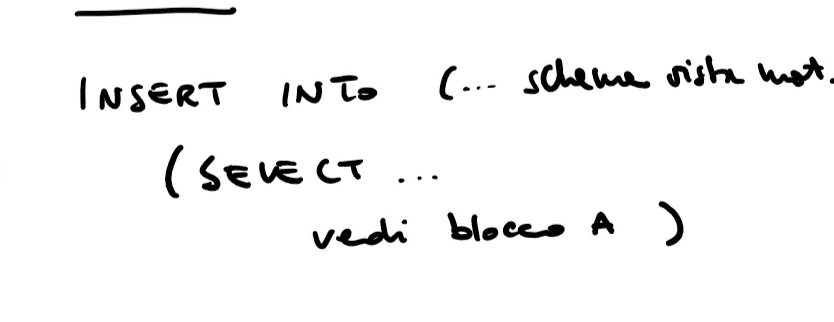 INSERT INTO (... schema vista mat.
(SELECT ...
vedi blocco A )